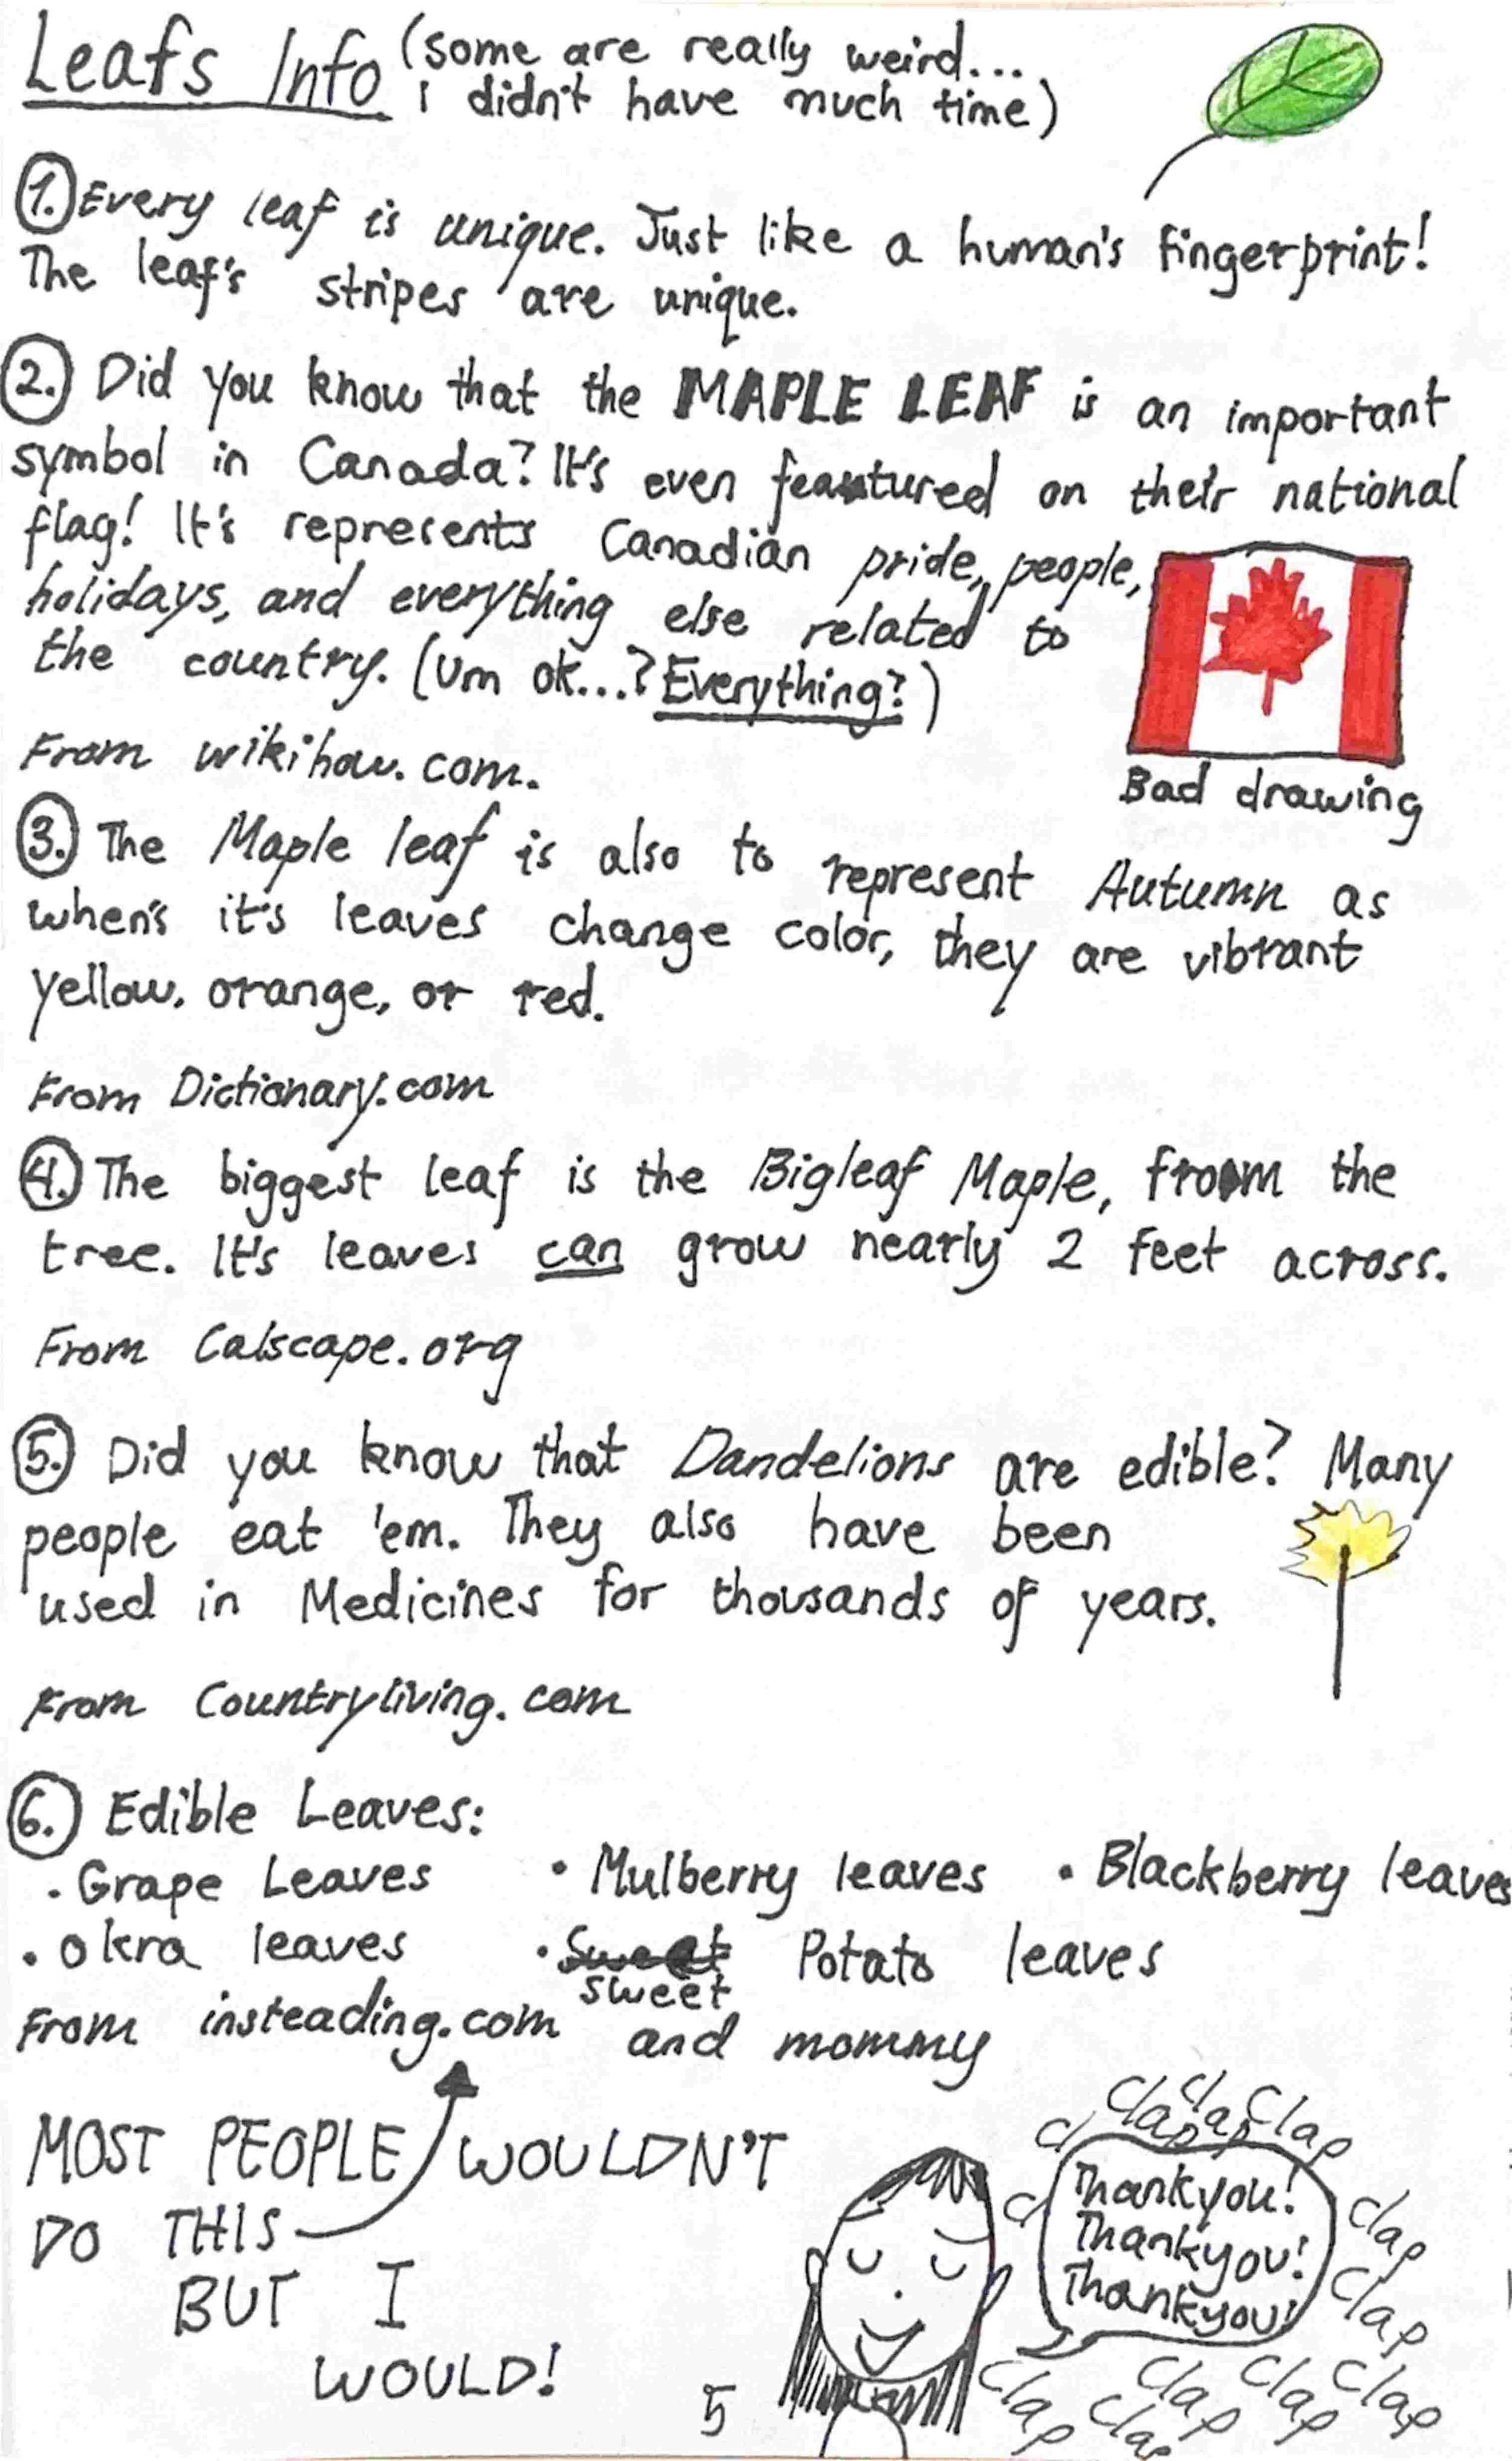 Leafs Info (some are really weird...
I didn't have much time)
1. Every leaf is unique. Just like a human's fingerprint!
The leaf's stripes are unique.
2. Did you know that the MAPLE LEAF is an important
symbol in Canada? It's even featured on their national
flag! It's represents Canadian pride, people,
holidays, and everything else related to
the country. (Um ok...? Everything?)
From wikihow.com.
Bad drawing
3. The Maple leaf is also to represent Autumn as
when's it's leaves change color, they are vibrant
yellow, orange, or red.
From Dictionary.com
4. The biggest leaf is the Bigleaf Maple, from the
tree. It's leaves can grow nearly 2 feet across.
From Calscape.org
5. Did you know that Dandelions are edible? Many
people eat 'em. They also have been
used in Medicines for thousands of years.
From Countryliving.com
6. Edible Leaves:
• Grape Leaves • Mulberry leaves • Blackberry leaves
• Okra leaves • Sweet Potato leaves
From insteading.com and mommy
MOST PEOPLE WOULDN'T
DO THIS
BUT I
WOULD!
5
Cl Clap Clap Clap
C Clap
Clap
Thankyou!
Thankyou!
Thankyou!
Clap Clap Clap Clap Clap